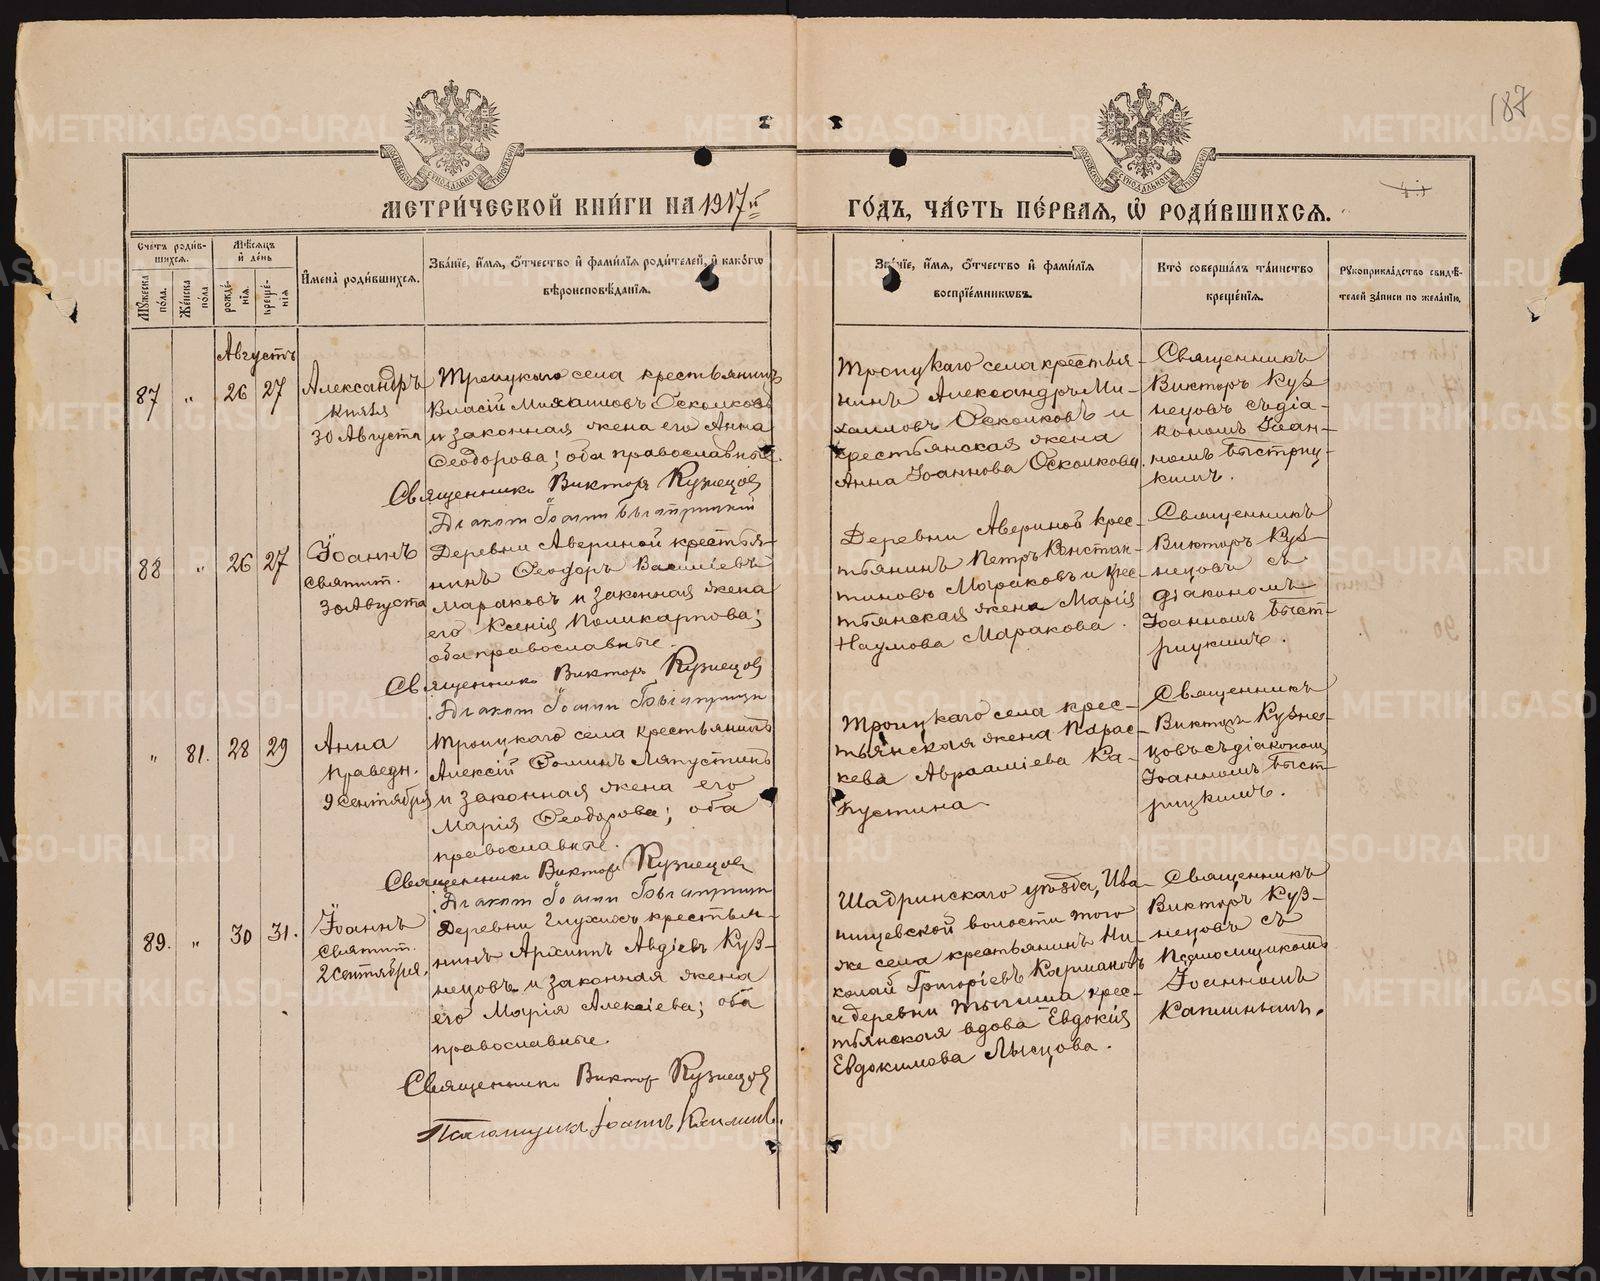 187
МЕТРИ́ЧЕСКОЙ КНИ́ГИ НА 1917й
ГО́ДЪ, ЧА́СТЬ ПЕ́РВАЯ, Ѡ҆ РОДИ́ВШИХСЯ.
Сче́тъ роди́в-
шихся.
Мѣ́сяцъ
и҆ де́нь
Мꙋ́жеска
по́ла.
Же́нска
по́ла.
рожде́-
нїя.
креще́-
нїя
И҆мена̀ роди́вшихся.
Зва́нїе, и҆́мя, ѻ҆́тчество и҆ фами́лїя роди́телей, и҆ како́гѡ
вѣроисповѣ́данїя.
Зва́нїе, и҆́мя, ѻ҆́тчество и҆ фами́лїя
воспрїе́мникѡвъ.
Кто̀ соверша́лъ та́инство
креще́нїя.
Рꙋкоприкла́дство свидѣ́-
телей за́писи по жела́нїю.
Августъ
87 „ 26 27
Александръ
князя
30 Августа
Троицкаго села крестьянинъ
Власій Михаиловъ Осколковъ
и законная жена его Анна
Ѳеодорова; оба православные.
Священникъ Викторъ Кузнецов
Диакон Іоанн Быстрицкий
Троицкаго села крестья-
нинъ Александръ Ми-
хаиловъ Осколковъ и
крестьянская жена
Анна Іоаннова Осколкова.
Священникъ
Викторъ Куз-
нецовъ съ діа-
кономъ Іоан-
номъ Быстриц-
кимъ.
88 „ 26 27
Іоаннъ
святит.
30 Августа
Деревни Авериной крестья-
нинъ Ѳеодоръ Василіевъ
Мараковъ и законная жена
его Ксенія Поликарпова;
оба православные.
Священникъ Викторъ Кузнецов
Диакон Іоанн Быстрицки
Деревни Авериной крес-
тьянинъ Петръ Констан-
тиновъ Мараковъ и крес-
тьянская жена Марія
Наумова Маракова.
Священникъ
Викторъ Куз-
нецовъ съ
діакономъ
Іоанномъ Быст-
рицкимъ.
„ 81. 28 29
Анна
праведн.
9 сентября
Троицкаго села крестьянинъ
Алексій Ѳоминъ Лапустинъ
и законная жена его
Марія Ѳеодорова; оба
православные.
Священникъ Викторъ Кузнецов
Диакон Іоанн Быстрицки
Троицкаго села крес-
тьянская жена Парас-
кева Авраамiева Ка-
пустина
Священникъ
Викторъ Кузне-
цовъ съ діакономъ
Іоанномъ Быст-
рицкимъ.
89. „ 30 31.
Іоаннъ
святит.
2 сентября.
Деревни Глухихъ крестья-
нинъ Архиппъ Авдіевъ Куз-
нецовъ и законная жена
его Марія Алексіева; оба
православные.
Священникъ Викторъ Кузнецов
Псаломщикъ Іоаннъ Каплинъ.
Шадринскаго уѣзда, Ива-
нищевской волости того
же села крестьянинъ Ни-
колай Григоріевъ Кармановъ
и деревни крес-
тьянская вдова Евдокія
Евдокимова Лысцова.
Священникъ
Викторъ Куз-
нецовъ съ
Псаломщикомъ
Іоанномъ
Каплинымъ.